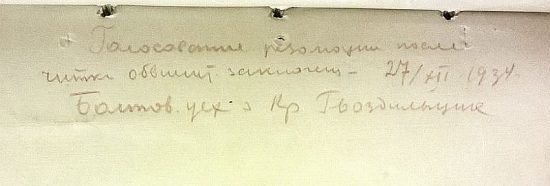 Голосование резолюции после
читки обвинит заключен – 27/XII 1934
Болтов. цех з Кр Гвоздильщик